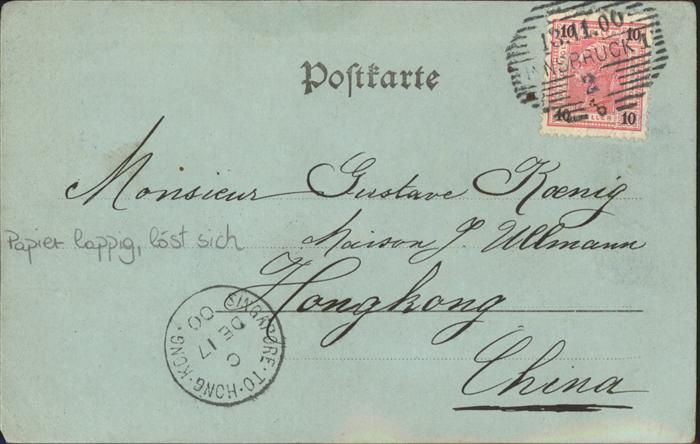 10 10
13.11.00
INNSBRUCK 1
2
10 HELLER 10
Postkarte
Monsieur Gustave Kœnig
Papier lappig, löst sich
Maison J. Ullmann
Hongkong
China
SINGAPORE·TO·HONG·KONG
C
DE 17
00